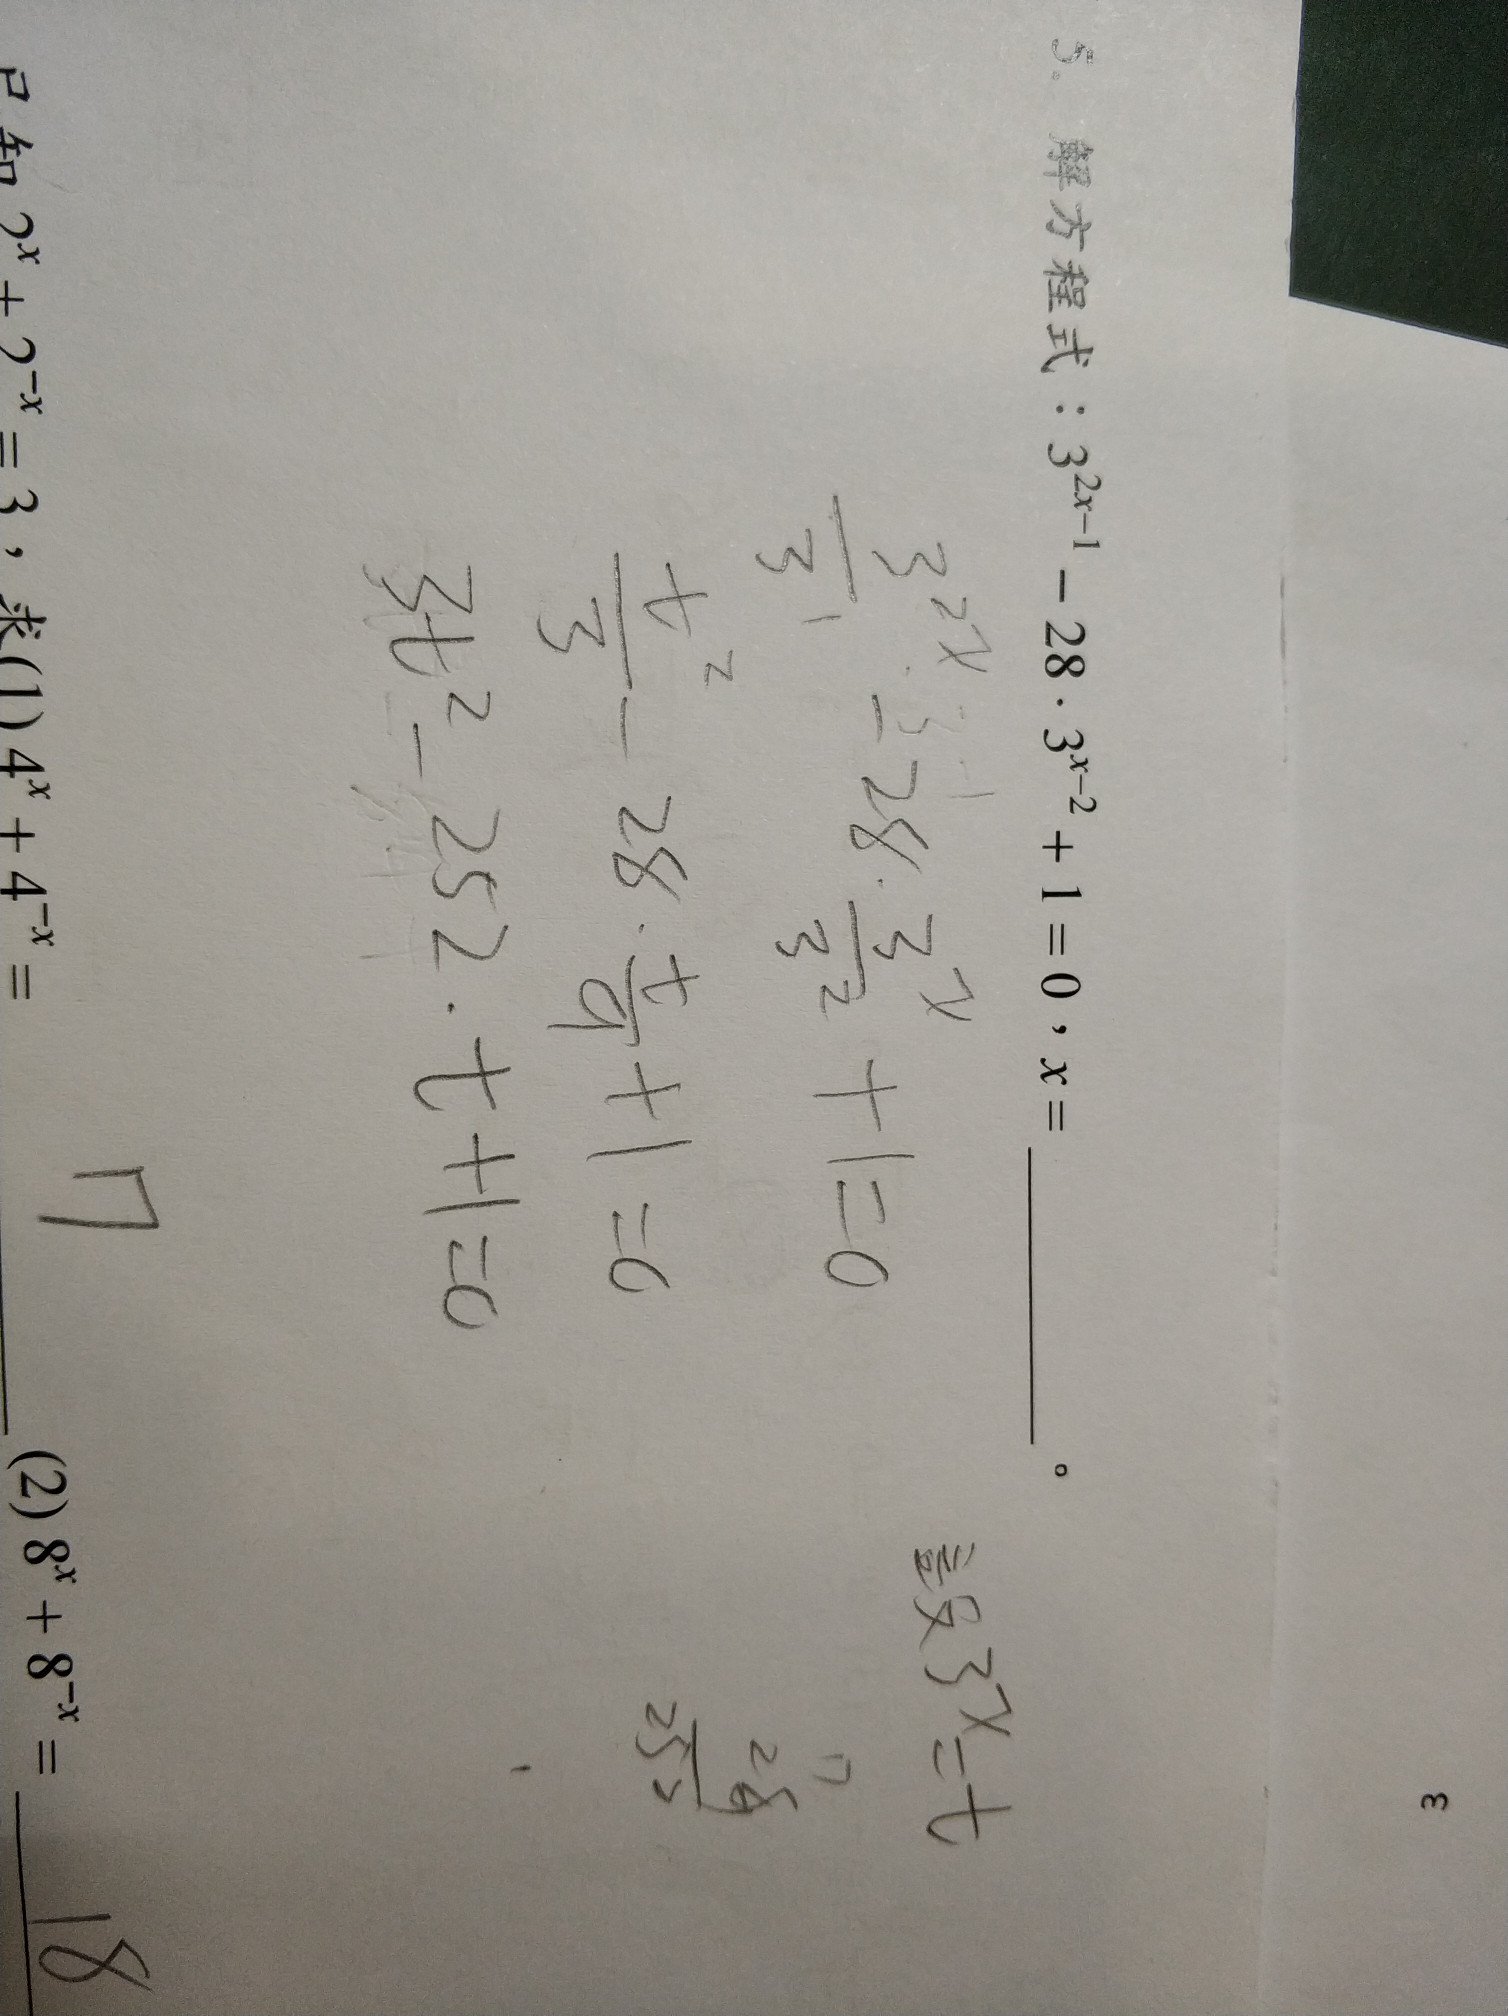 3
5. 解方程式：3^{2x-1} - 28 · 3^{x-2} + 1 = 0，x = ________。
設3^x = t
3^{2x}/3^1 - 28 · 3^x/3^2 + 1 = 0
28
252
t^2/3 - 28 · t/9 + 1 = 0
3t^2 - 252 · t + 1 = 0
7
18
已知 2^x + 2^{-x} = 3，求(1) 4^x + 4^{-x} = ________ (2) 8^x + 8^{-x} = ________